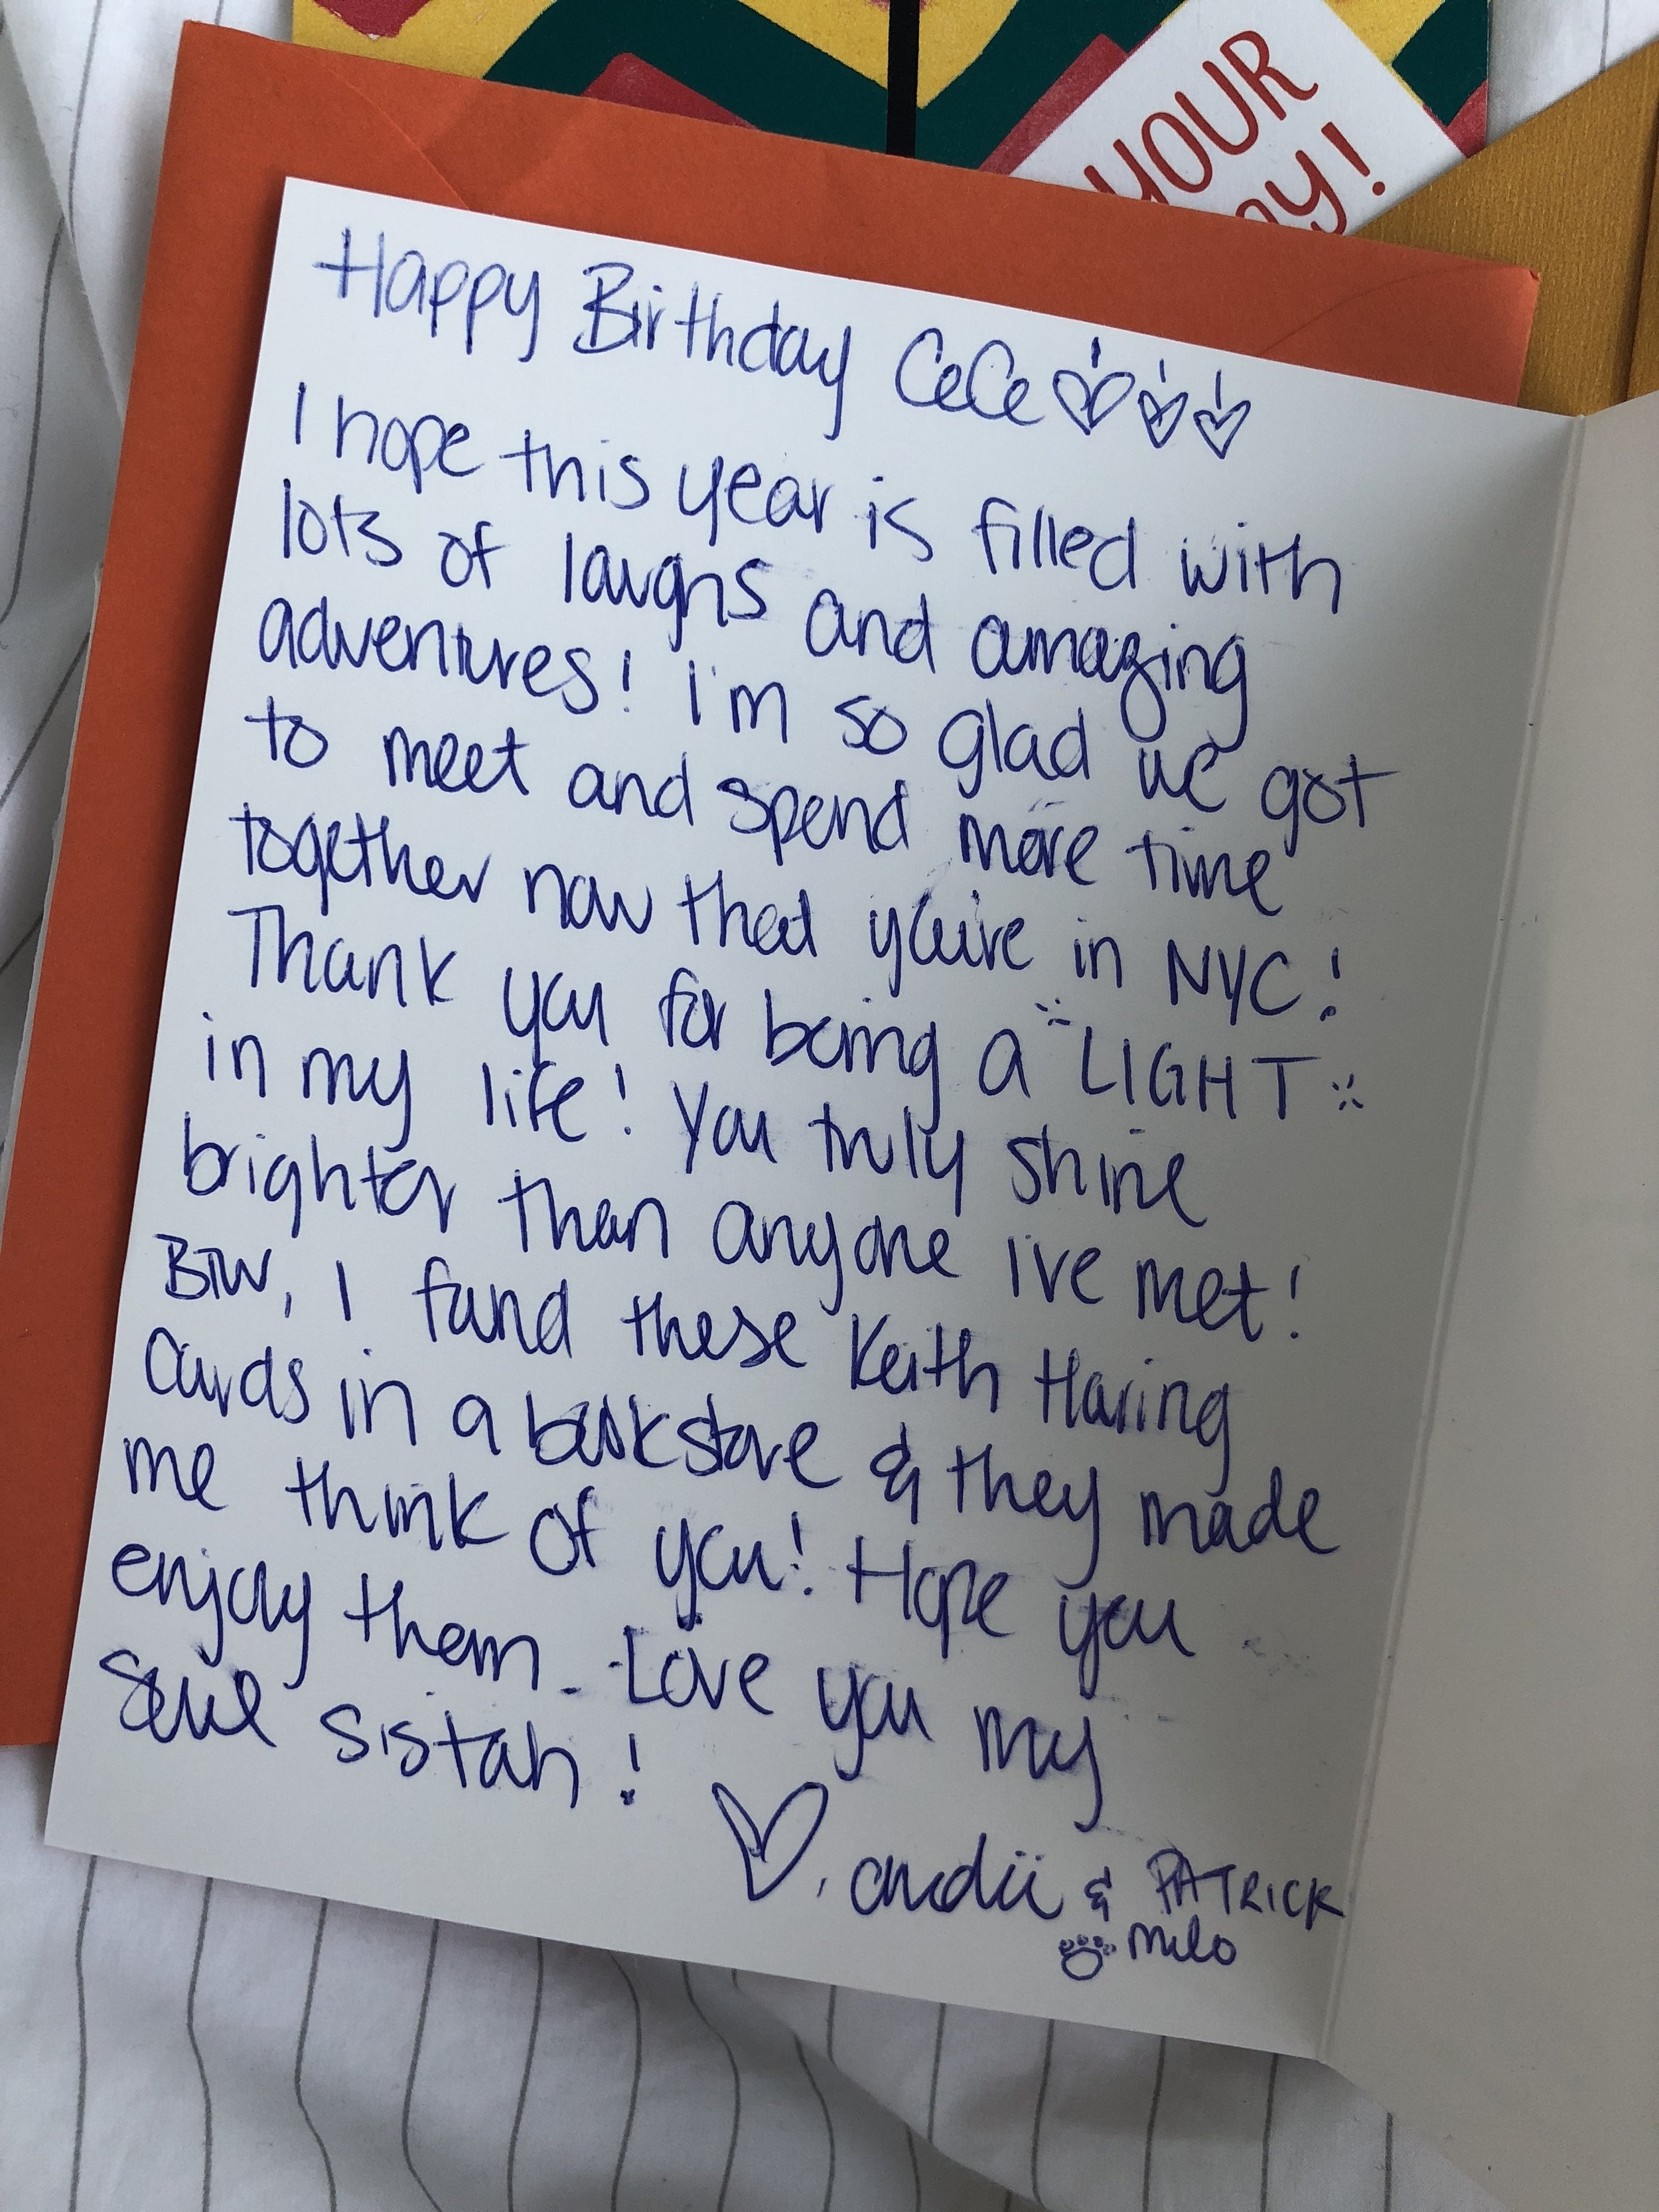 YOUR
ay!
Happy Birthday CeCe
I hope this year is filled with
lots of laughs and amazing
adventures! I'm so glad we got
to meet and spend more time
together now that you're in NYC!
Thank you for being a LIGHT
in my life! You truly shine
brighter than anyone I've met!
BTW, I found these Keith Haring
Cards in a bookstore & they made
me think of you! Hope you
enjoy them. Love you my
Soul Sistah!
, andii & PATRICK
Milo